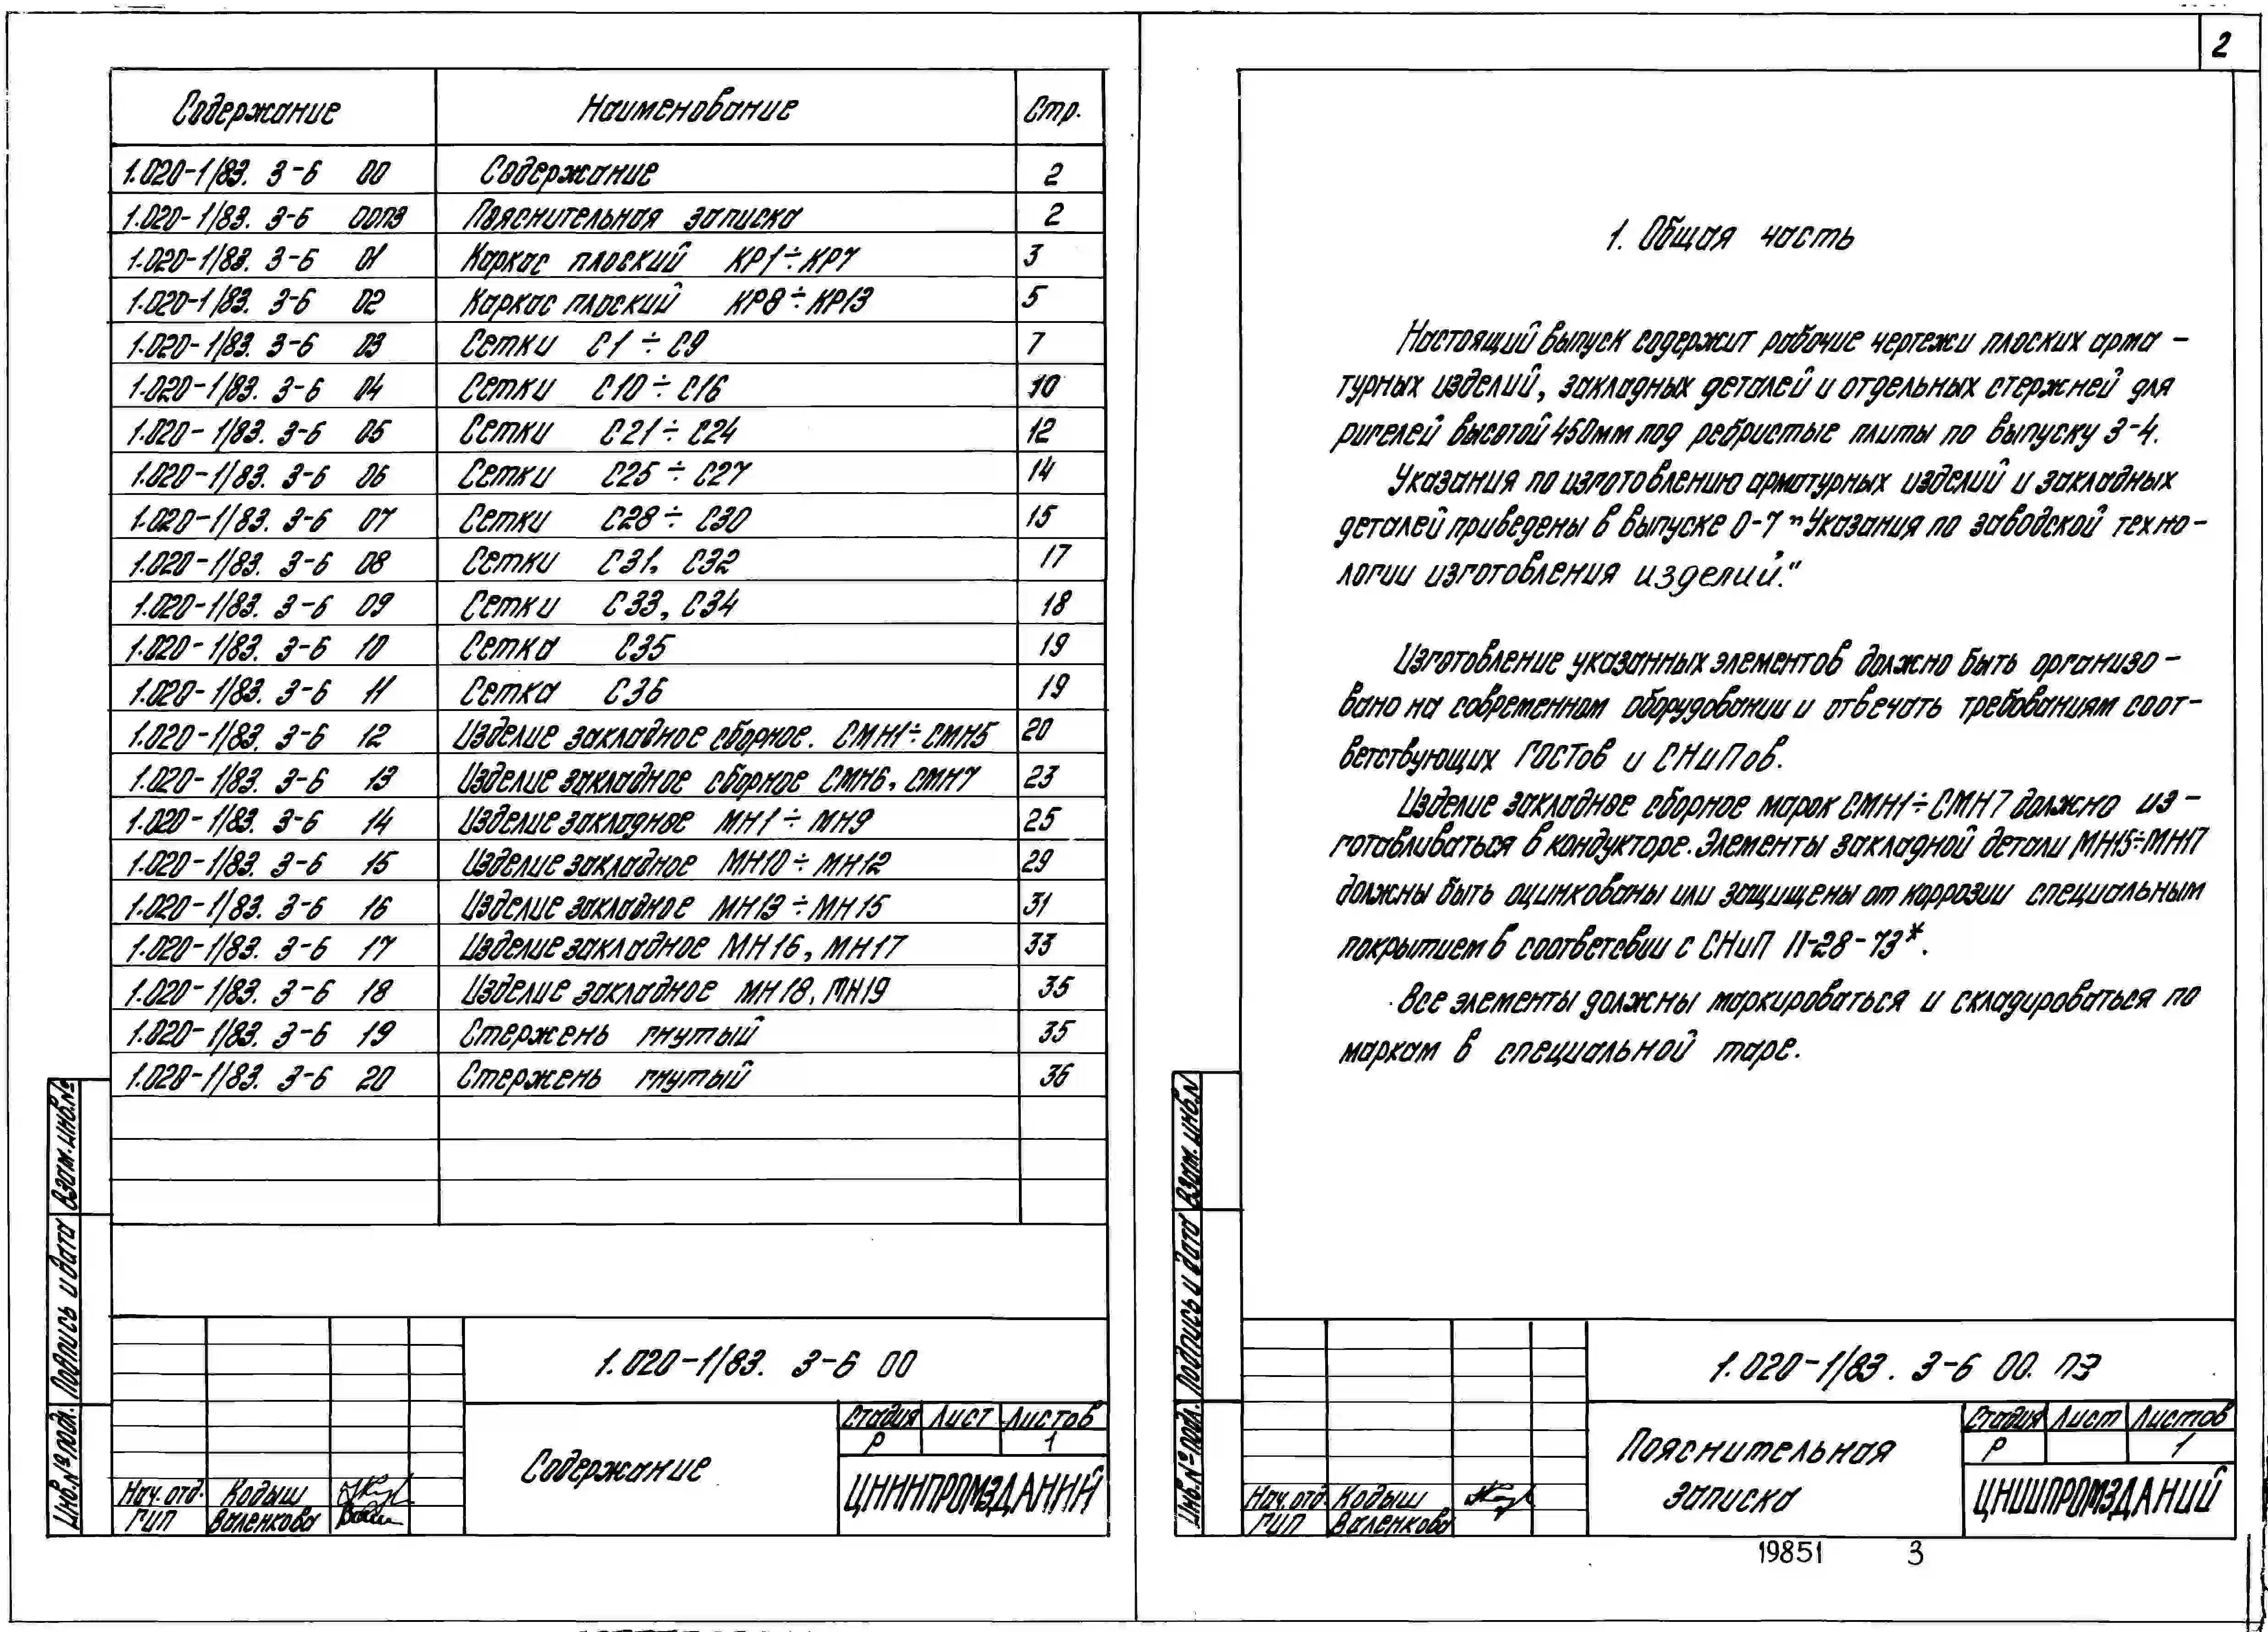 Содержание Наименование Стр.
1.020-1/83. 3-6 00 Содержание 2
1.020-1/83. 3-6 00ПЗ Пояснительная записка 2
1.020-1/83. 3-6 01 Каркас плоский КР1÷КР7 3
1.020-1/83. 3-6 02 Каркас плоский КР8÷КР13 5
1.020-1/83. 3-6 03 Сетки С1÷С9 7
1.020-1/83. 3-6 04 Сетки С10÷С16 10
1.020-1/83. 3-6 05 Сетки С21÷С24 12
1.020-1/83. 3-6 06 Сетки С25÷С27 14
1.020-1/83. 3-6 07 Сетки С28÷С30 15
1.020-1/83. 3-6 08 Сетки С31, С32 17
1.020-1/83. 3-6 09 Сетки С33, С34 18
1.020-1/83. 3-6 10 Сетка С35 19
1.020-1/83. 3-6 11 Сетка С36 19
1.020-1/83. 3-6 12 Изделие закладное сборное. СМН1÷СМН5 20
1.020-1/83. 3-6 13 Изделие закладное сборное СМН6, СМН7 23
1.020-1/83. 3-6 14 Изделие закладное МН1÷МН9 25
1.020-1/83. 3-6 15 Изделие закладное МН10÷МН12 29
1.020-1/83. 3-6 16 Изделие закладное МН13÷МН15 31
1.020-1/83. 3-6 17 Изделие закладное МН16, МН17 33
1.020-1/83. 3-6 18 Изделие закладное МН18, МН19 35
1.020-1/83. 3-6 19 Стержень гнутый 35
1.020-1/83. 3-6 20 Стержень гнутый 36
Взам. инв.№
Подпись и дата
Инв.№ подл.
1.020-1/83. 3-6 00
Содержание
Стадия Лист Листов
Р 1
ЦНИИПРОМЗДАНИЙ
Нач. отд. Кодыш
ГИП Валенкова
2
1. Общая часть
Настоящий выпуск содержит рабочие чертежи плоских арма-
турных изделий, закладных деталей и отдельных стержней для
ригелей высотой 450мм под ребристые плиты по выпуску 3-4.
Указания по изготовлению арматурных изделий и закладных
деталей приведены в выпуске 0-7 "Указания по заводской техно-
логии изготовления изделий."
Изготовление указанных элементов должно быть организо-
вано на современном оборудовании и отвечать требованиям соот-
ветствующих ГОСТов и СНиПов.
Изделие закладное сборное марок СМН1÷СМН7 должно из-
готавливаться в кондукторе. Элементы закладной детали МН15÷МН17
должны быть оцинкованы или защищены от коррозии специальным
покрытием в соответсвии с СНиП II-28-73*.
Все элементы должны маркироваться и складироваться по
маркам в специальной таре.
Взам. инв.N
Подпись и дата
Инв.№ подл.
1.020-1/83. 3-6 00. ПЗ
Пояснительная
записка
Стадия Лист Листов
Р 1
ЦНИИПРОМЗДАНИЙ
Нач. отд. Кодыш
ГИП Валенкова
19851 3